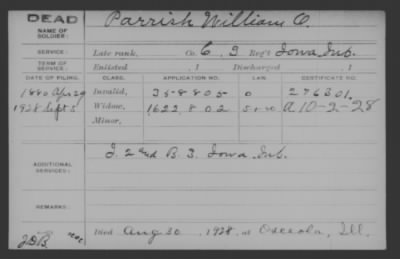 DEAD
NAME OF SOLDIER: Parrish William C.
SERVICE: Late rank, Co. C, 3 Reg't Iowa Inf.
TERM OF SERVICE: Enlisted , 1 Discharged , 1
DATE OF FILING. CLASS. APPLICATION NO. LAW. CERTIFICATE NO.
1880 Apr 29 Invalid, 358805 0 276301.
1928 Sept 5 Widow, 1622,802 5-1-20 A 10-2-28
Minor,
ADDITIONAL SERVICES: I. 2 and B. 3. Iowa Inf.
REMARKS:
Died Aug 30, 1928, at Osceola, Ill.